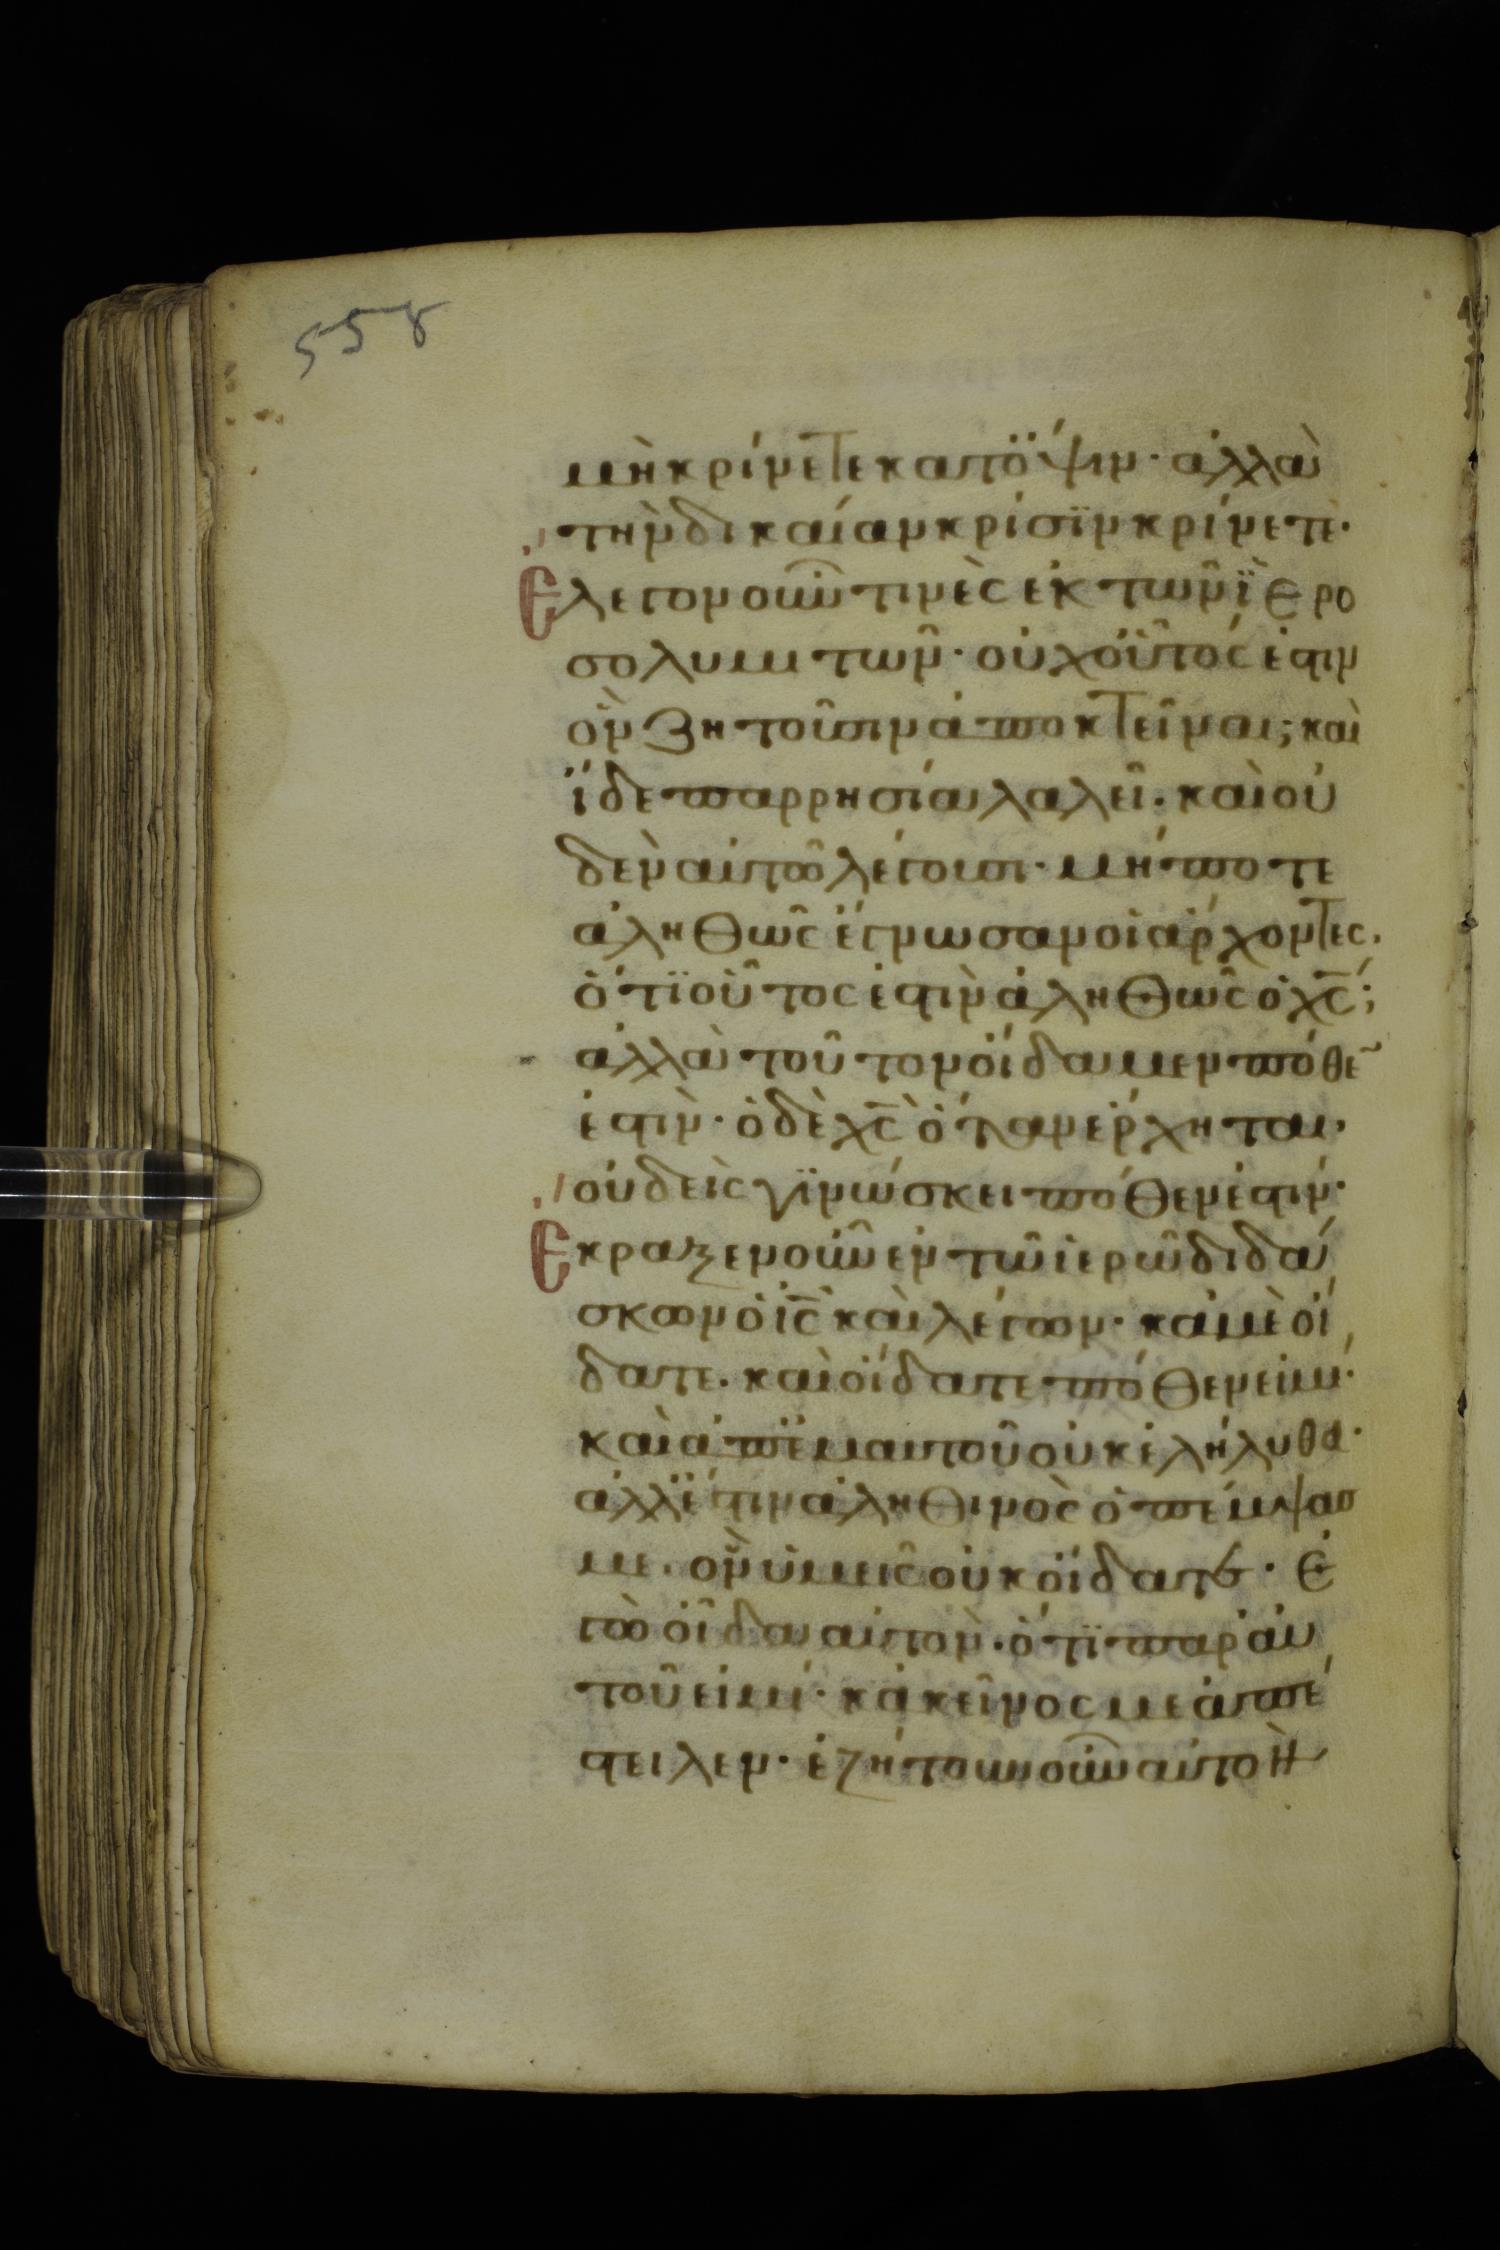 558
μὴ κρίνετε κατ' ὄψιν· ἀλλὰ
τὴν δικαίαν κρίσϊν κρίνετε·
Ἔλεγον οὖν τινὲς ἐκ τῶν ϊερο
σολυμιτῶν· οὐχ οὗτός ἐστιν
ὃν ζητοῦσιν ἀποκτεῖναι; καὶ
ἴδε παρρησία λαλεῖ· καὶ οὐ
δὲν αὐτῶ λέγουσι· μήποτε
ἀληθῶς ἔγνωσαν οἱ ἄρχοντες·
ὅτϊ οὗτος ἐστὶν ἀληθῶς ὁ χς;
ἀλλὰ τοῦτον οἴδαμεν πόθε
ἐστὶν· ὁ δὲ χς ὅταν ἔρχηται·
οὐδεὶς γϊνώσκει πόθεν ἐστίν·
Ἔκραξεν οὖν ἐν τῶ ἱερῶ διδά
σκων ὁ ις καὶ λέγων· κἀμὲ οἴ
δατε· καὶ οἴδατε πόθεν εἰμί·
καὶ ἀπ' ἐμαυτοῦ οὐκ ἐλήλυθα·
ἀλλ' ἔστιν ἀληθινὸς ὁ πέμψας
με· ὃν ὑμεῖς οὐκ οἴδατε· ἐ
γὼ οἶδα αὐτὸν· ὅτϊ παρ' αὐ
τοῦ εἰμί· κἀκεῖνος με ἀπέ
στειλεν· ἐζήτουν οὖν αὐτὸν